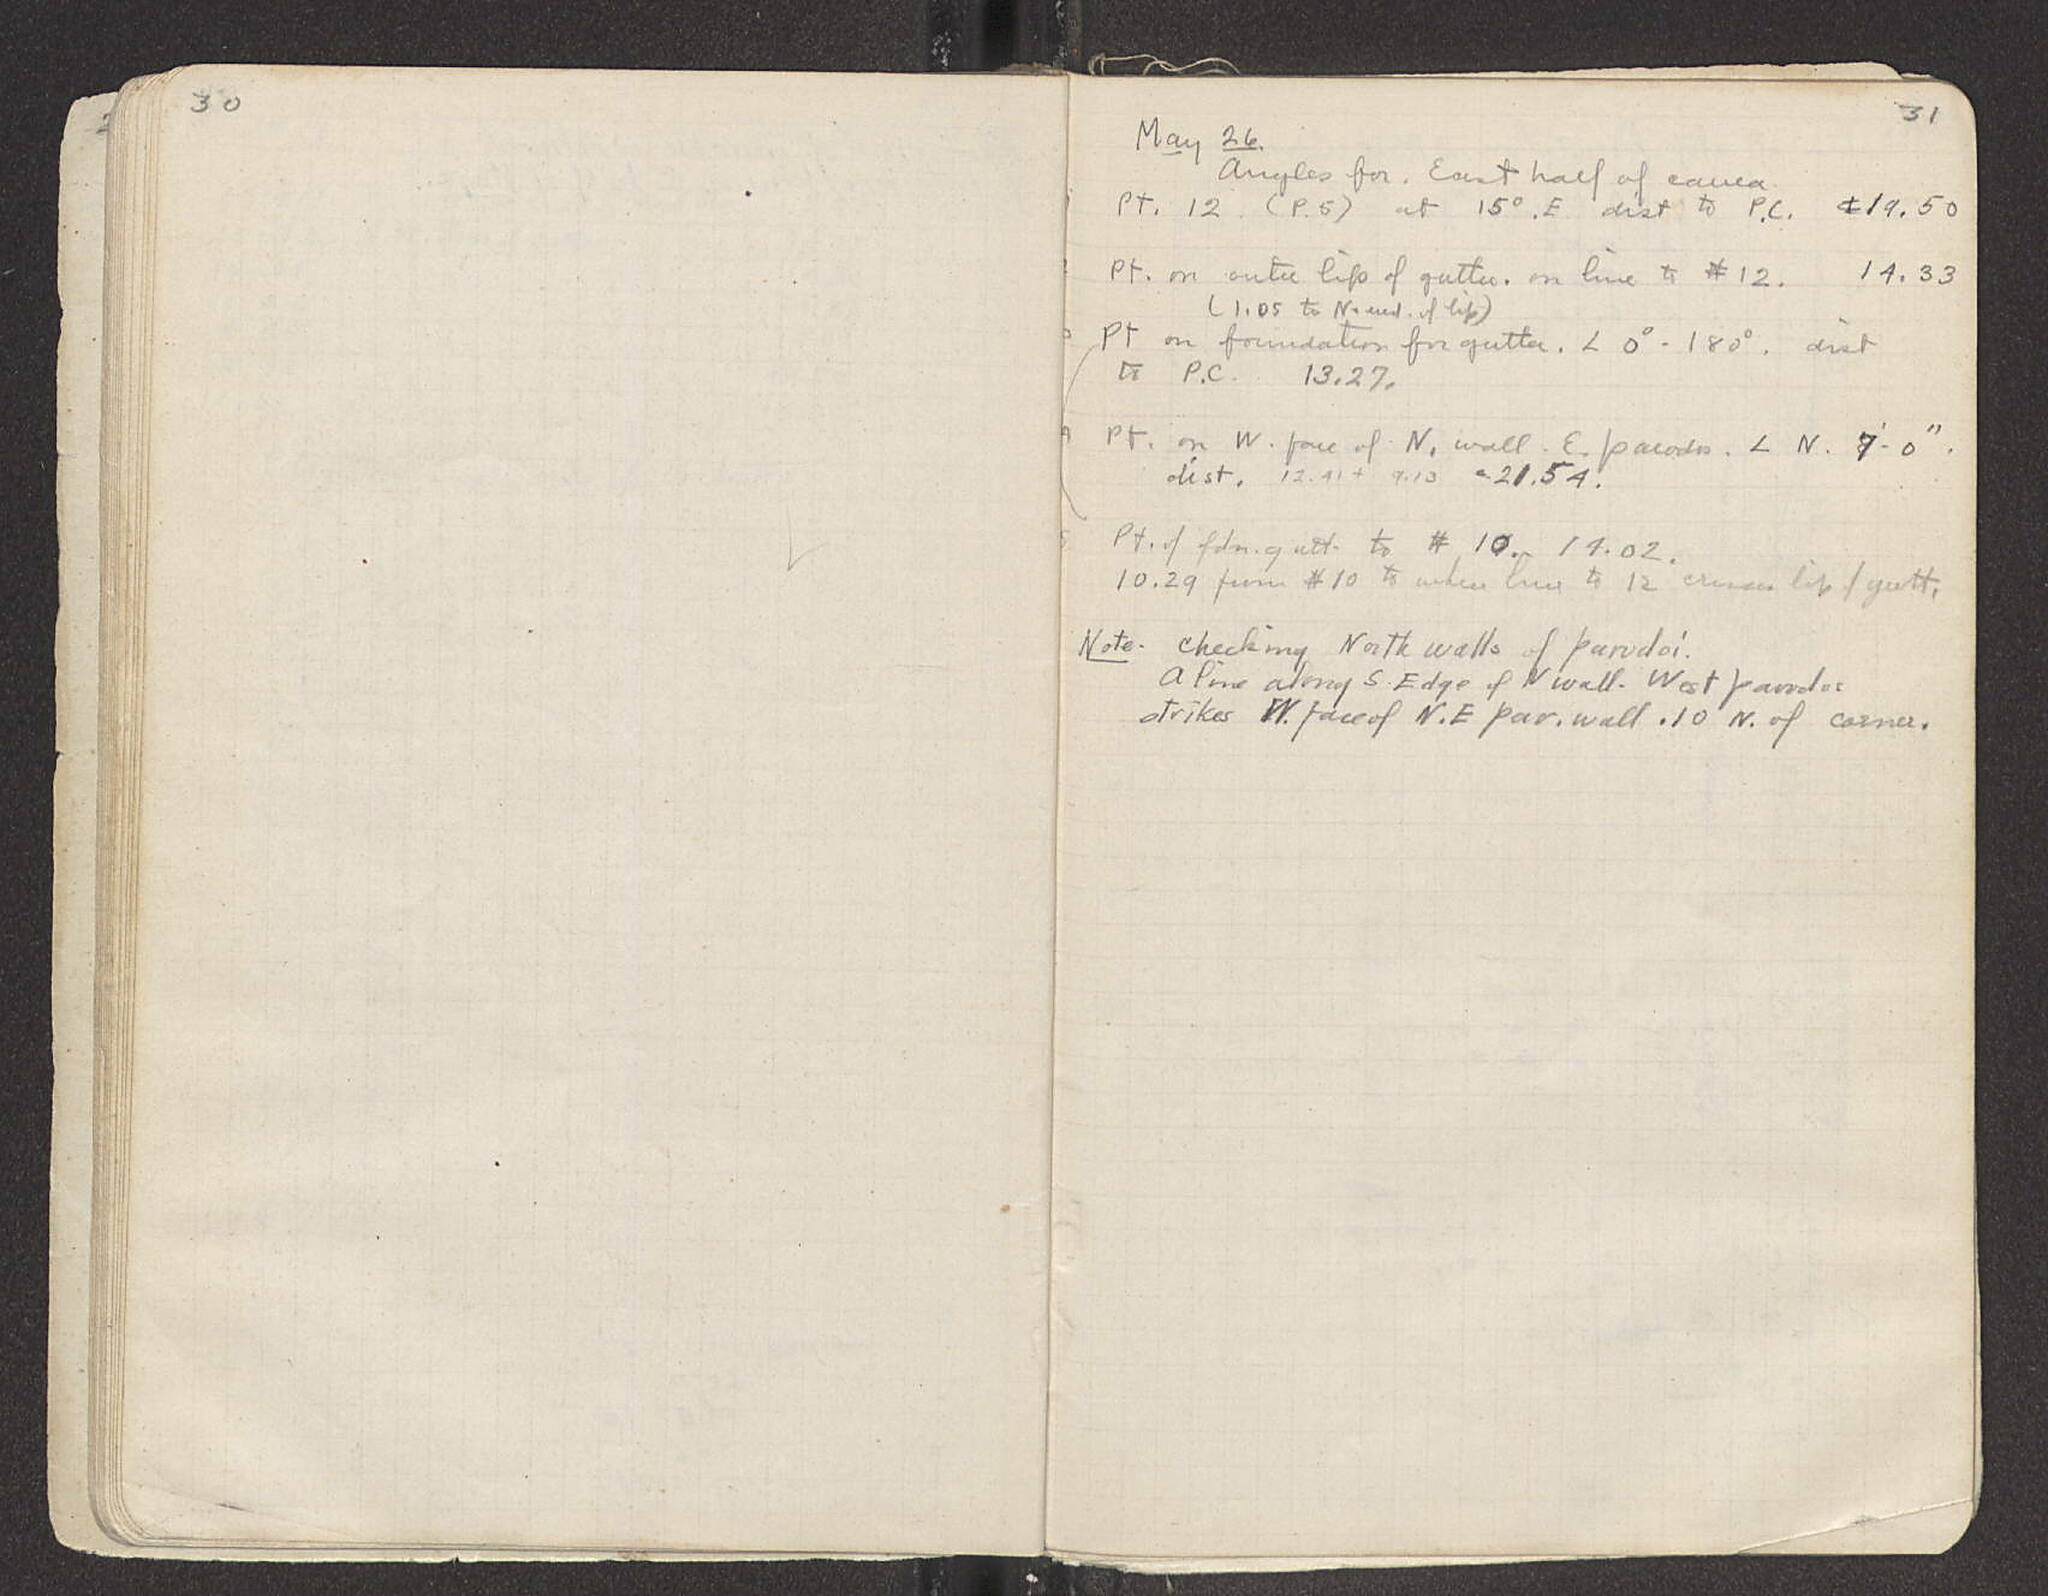 30
31
May 26.
Angles for. East half of cavea
Pt. 12 (P.5) at 15°.E dist to P.C. 19.50
Pt. on outer lip of gutter. on line to #12. 14.33
(1.05 to N. end. of lip)
Pt on foundation for gutter. ∠ 0° - 180°. dist
to P.C. 13.27.
Pt. on W. face of N. wall. E. parodos. ∠ N. 7'- 0".
dist. 12.41 + 9.13 = 21.54.
Pt. of fdn. gutt. to # 10. 14.02.
10.29 from #10 to where line to 12 crosses lip of gutt.
Note. checking North walls of parodoi.
A line along S. Edge of N wall. West parodos
strikes W. face of N.E par. wall .10 N. of corner.